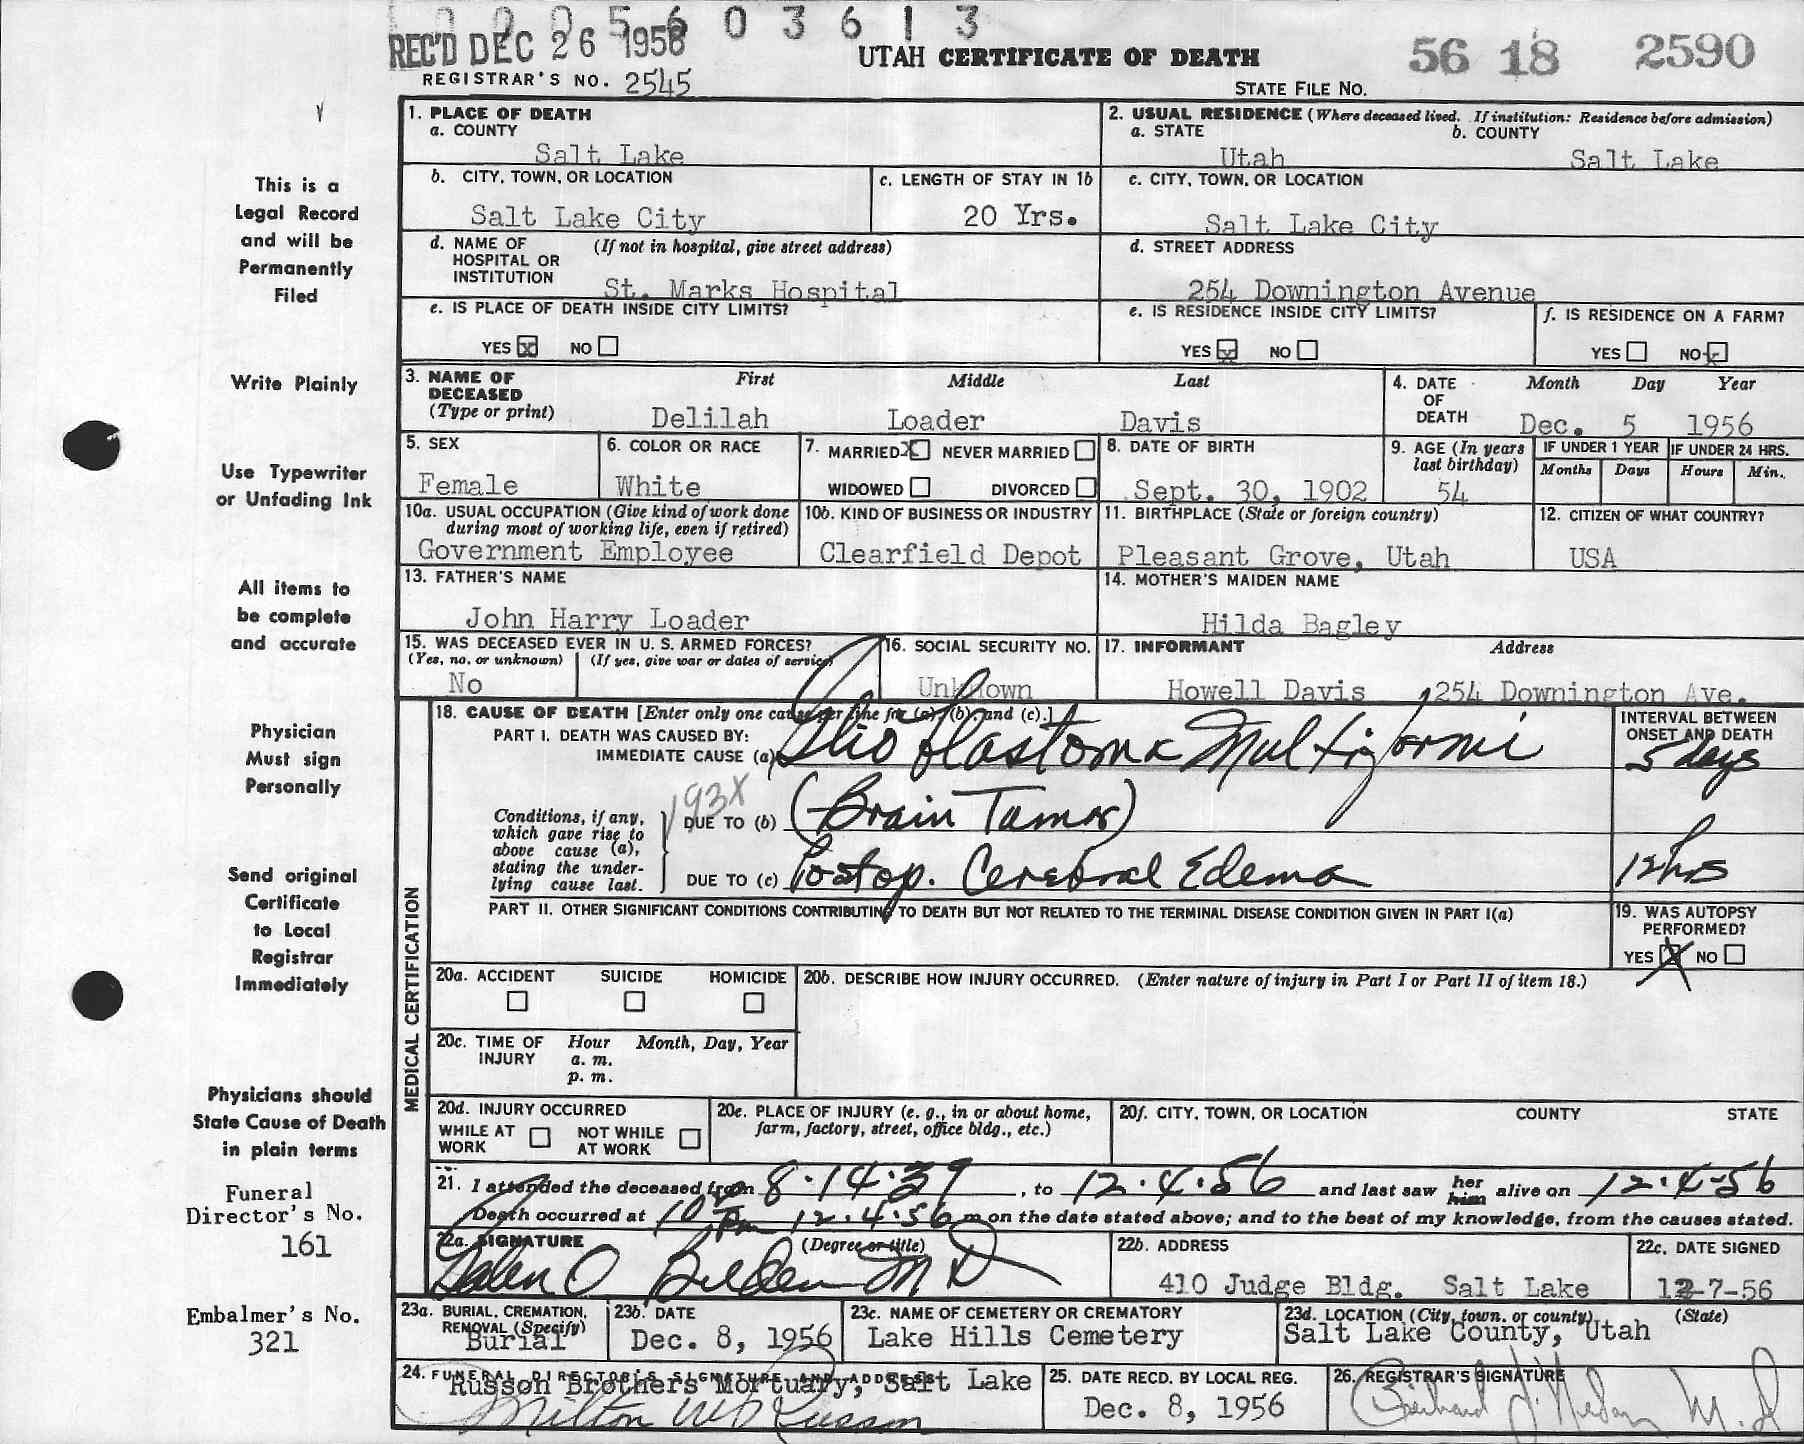 0 0 0 5 6 0 3 6 1 3
REC'D DEC 26 1956
UTAH CERTIFICATE OF DEATH
56 18 2590
REGISTRAR'S NO. 2545
STATE FILE NO.
1. PLACE OF DEATH
a. COUNTY
Salt Lake
2. USUAL RESIDENCE (Where deceased lived. If institution: Residence before admission)
a. STATE b. COUNTY
Utah Salt Lake
b. CITY, TOWN, OR LOCATION
Salt Lake City
c. LENGTH OF STAY IN 1b
20 Yrs.
c. CITY, TOWN, OR LOCATION
Salt Lake City
d. NAME OF HOSPITAL OR INSTITUTION (If not in hospital, give street address)
St. Marks Hospital
d. STREET ADDRESS
254 Downington Avenue
e. IS PLACE OF DEATH INSIDE CITY LIMITS?
YES x NO
e. IS RESIDENCE INSIDE CITY LIMITS?
YES x NO
f. IS RESIDENCE ON A FARM?
YES NO x
3. NAME OF DECEASED (Type or print)
First Middle Last
Delilah Loader Davis
4. DATE OF DEATH
Month Day Year
Dec. 5 1956
5. SEX
Female
6. COLOR OR RACE
White
7. MARRIED x NEVER MARRIED
WIDOWED DIVORCED
8. DATE OF BIRTH
Sept. 30, 1902
9. AGE (In years last birthday)
54
IF UNDER 1 YEAR
Months Days
IF UNDER 24 HRS.
Hours Min.
10a. USUAL OCCUPATION (Give kind of work done during most of working life, even if retired)
Government Employee
10b. KIND OF BUSINESS OR INDUSTRY
Clearfield Depot
11. BIRTHPLACE (State or foreign country)
Pleasant Grove, Utah
12. CITIZEN OF WHAT COUNTRY?
USA
13. FATHER'S NAME
John Harry Loader
14. MOTHER'S MAIDEN NAME
Hilda Bagley
15. WAS DECEASED EVER IN U. S. ARMED FORCES?
(Yes, no, or unknown) (If yes, give war or dates of service)
No
16. SOCIAL SECURITY NO.
Unknown
17. INFORMANT Address
Howell Davis 254 Downington Ave.
MEDICAL CERTIFICATION
18. CAUSE OF DEATH [Enter only one cause per line for (a), (b), and (c).]
PART I. DEATH WAS CAUSED BY:
IMMEDIATE CAUSE (a) Glioblastoma Multiformi
INTERVAL BETWEEN ONSET AND DEATH
5 days
193X
Conditions, if any, which gave rise to above cause (a), stating the underlying cause last.
DUE TO (b) (Brain Tumor)
DUE TO (c) Postop. Cerebral Edema
12 hrs
PART II. OTHER SIGNIFICANT CONDITIONS CONTRIBUTING TO DEATH BUT NOT RELATED TO THE TERMINAL DISEASE CONDITION GIVEN IN PART I(a)
19. WAS AUTOPSY PERFORMED?
YES X NO
20a. ACCIDENT SUICIDE HOMICIDE
20b. DESCRIBE HOW INJURY OCCURRED. (Enter nature of injury in Part I or Part II of item 18.)
20c. TIME OF INJURY
Hour Month, Day, Year
a. m.
p. m.
20d. INJURY OCCURRED
WHILE AT WORK NOT WHILE AT WORK
20e. PLACE OF INJURY (e. g., in or about home, farm, factory, street, office bldg., etc.)
20f. CITY, TOWN, OR LOCATION COUNTY STATE
21. I attended the deceased from 8.14.39, to 12.4.56 and last saw her him alive on 12.4-56
Death occurred at 10 pm 12.4.56 m on the date stated above; and to the best of my knowledge, from the causes stated.
22a. SIGNATURE (Degree or title)
M D
22b. ADDRESS
410 Judge Bldg. Salt Lake
22c. DATE SIGNED
12-7-56
23a. BURIAL, CREMATION, REMOVAL (Specify)
Burial
23b. DATE
Dec. 8, 1956
23c. NAME OF CEMETERY OR CREMATORY
Lake Hills Cemetery
23d. LOCATION (City, town, or county) (State)
Salt Lake County, Utah
24. FUNERAL DIRECTOR'S SIGNATURE AND ADDRESS
Russon Brothers Mortuary, Salt Lake
Milton Russon
25. DATE RECD. BY LOCAL REG.
Dec. 8, 1956
26. REGISTRAR'S SIGNATURE
M.D
This is a
Legal Record
and will be
Permanently
Filed
Write Plainly
Use Typewriter
or Unfading Ink
All items to
be complete
and accurate
Physician
Must sign
Personally
Send original
Certificate
to Local
Registrar
Immediately
Physicians should
State Cause of Death
in plain terms
Funeral
Director's No.
161
Embalmer's No.
321